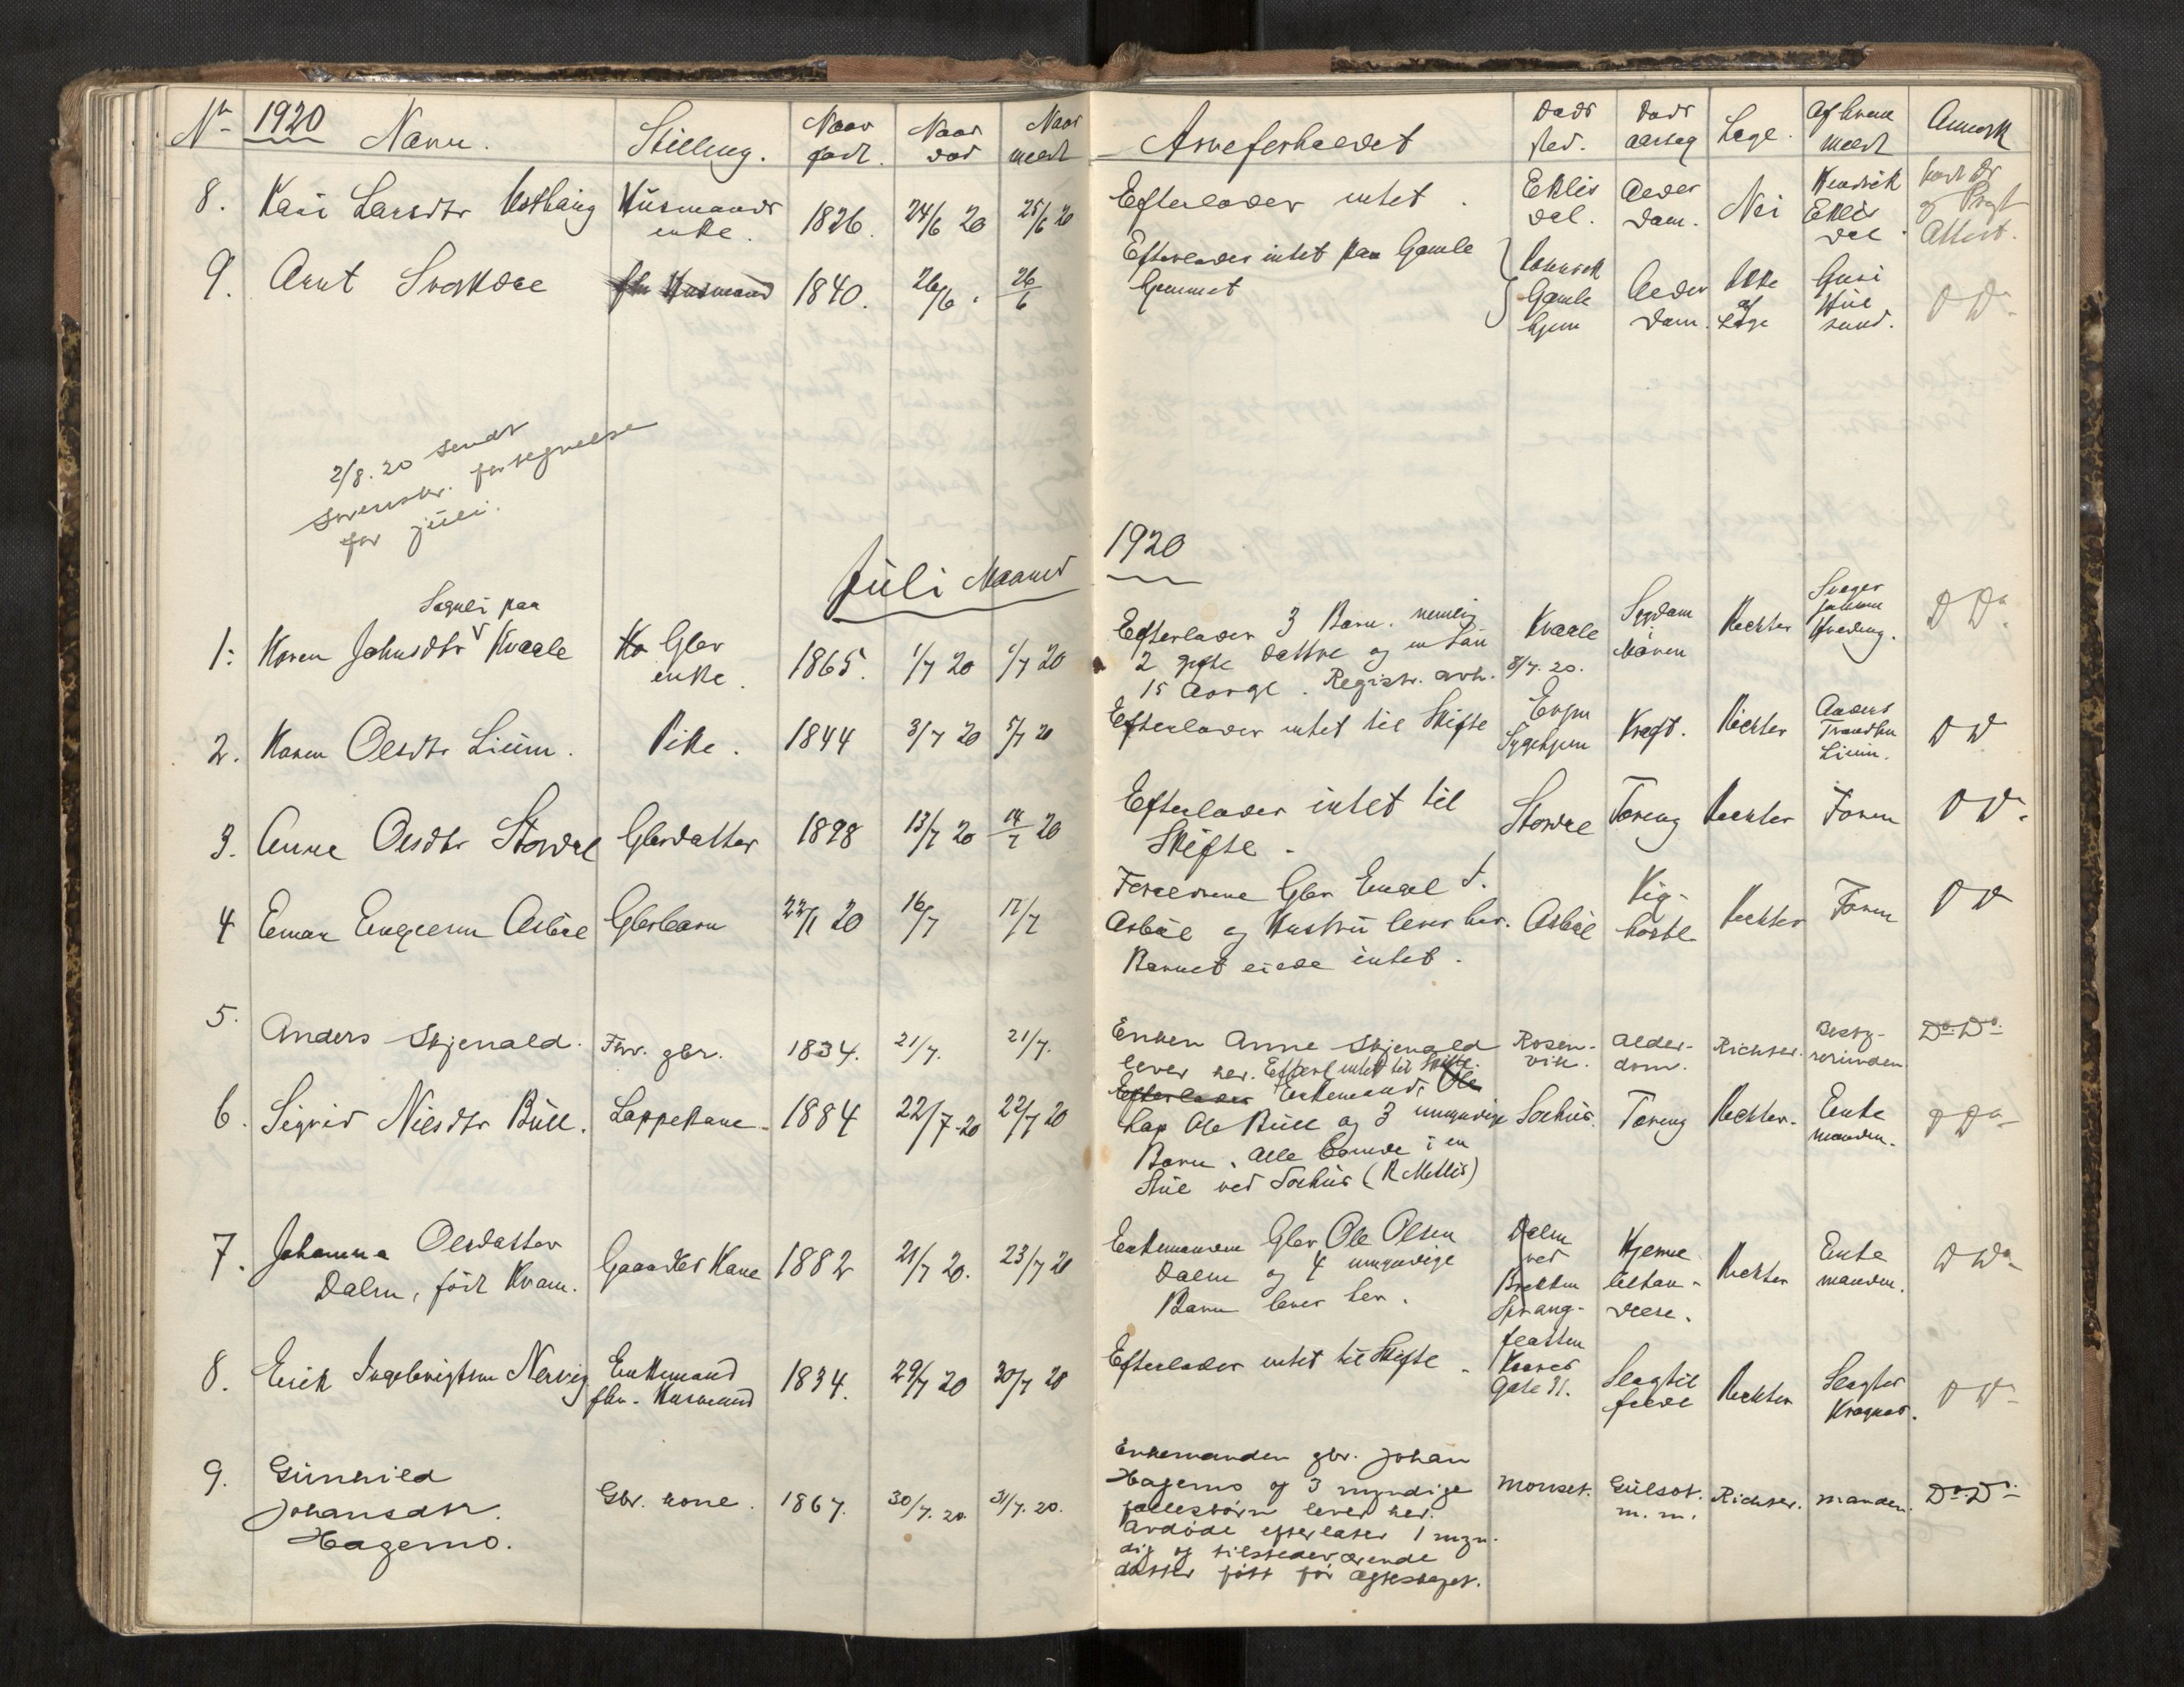 Nr 1920 Navn. Stilling. Naar født. Naar død Naar meldt Arveforholdet Døds sted. Døds aarsag Læge. Af hvem meldt Anmerk
8. Kari Larsdtr Husmands enke. 1826. 24/6 20 25/6 20 Efterlader intet. Eklis dal. Alder dom. Nei Hendrik Eklis dal Attest.
9. Arnt fhv Husmand 1840. 26/6. 26/6 Efterlader intet paa Gamle hjemmet Gamle hjem Alder dom. Ikke af Læge D Do
2/8.20 sendt
fortegnelse
for juli.
Juli Maaned 1920
paa
1. Karen Johnsdtr Kvaale Gbr enke. 1865. 1/7 20 1/7 20 Efterlader 3 Barn. nemlig
2 gifte døttre og en Søn
15 Aar gl. Registr. avh. 8/7.20. Kvaale Sygdom i Maven Richter Svoger D Do
2. Karen Olsdtr Lium. Pike. 1844 3/7 20 5/7 20 Efterlader intet til Skifte Sygehjem Kræft. Richter Anders Lium. D D
3. Anne Olsdtr Stordal Gbrdatter 1898 13/7 20 14/7 20 Efterlader intet til
Skifte. Stordal Tæring Richter Faren D D.
4 Einar Asbøl Gbrbarn 22/1 20 16/7 17/7 Forældrene Gbr
Asbøl og Hustru lever her.
Barnet eiede intet. Asbøl Kig-hoste Richter Faren D D
5. Anders Skjenald. Fhv. gbr. 1834. 21/7. 21/7. Enken Anne Skjenald
lever her. Efterl intet til Skifte. Rosen-vik. Alder-dom. Richter. Besty-rerinden Do Do
6. Sigrid Nilsdtr Bull. Lappekone 1884 22/7-20 22/7 20 Efterlader Enkemand, Ole
Lap Ole Bull og 3 umyndige
Barn. Alle boende i en
Stue ved Tæring Richter. Enke manden. D Do
7. Johanna Olsdatter
Dalen, født Kvam. Gaardbr Kone 1882 21/7 20. 23/7 20 Enkemanden Gbr Ole Olsen
Dalen og 4 umyndige
Barn lever her. Dalen ved Hjerne Richter Enke manden. D Do
8. Erik Ingebrigtsen Nervig Enkemand
fhv. Husmand 1834. 29/7 20 30/7 20 Efterlader intet til Skifte. Gate 31. Slagtil fælde Richter Slagter D D
9. Gunhild
Johansdtr.
Hagemo. Gbr. kone. 1867. 30/7.20. 31/7.20. Enkemanden gbr. Johan
Hagemo og 3 myndige
fællesbørn lever her.
Avdøde efterlater 1 myn-
dig og tilstedeværende
datter født før ægteskapet. Monset. Gulsot. m.m. Richter. manden. Do Do